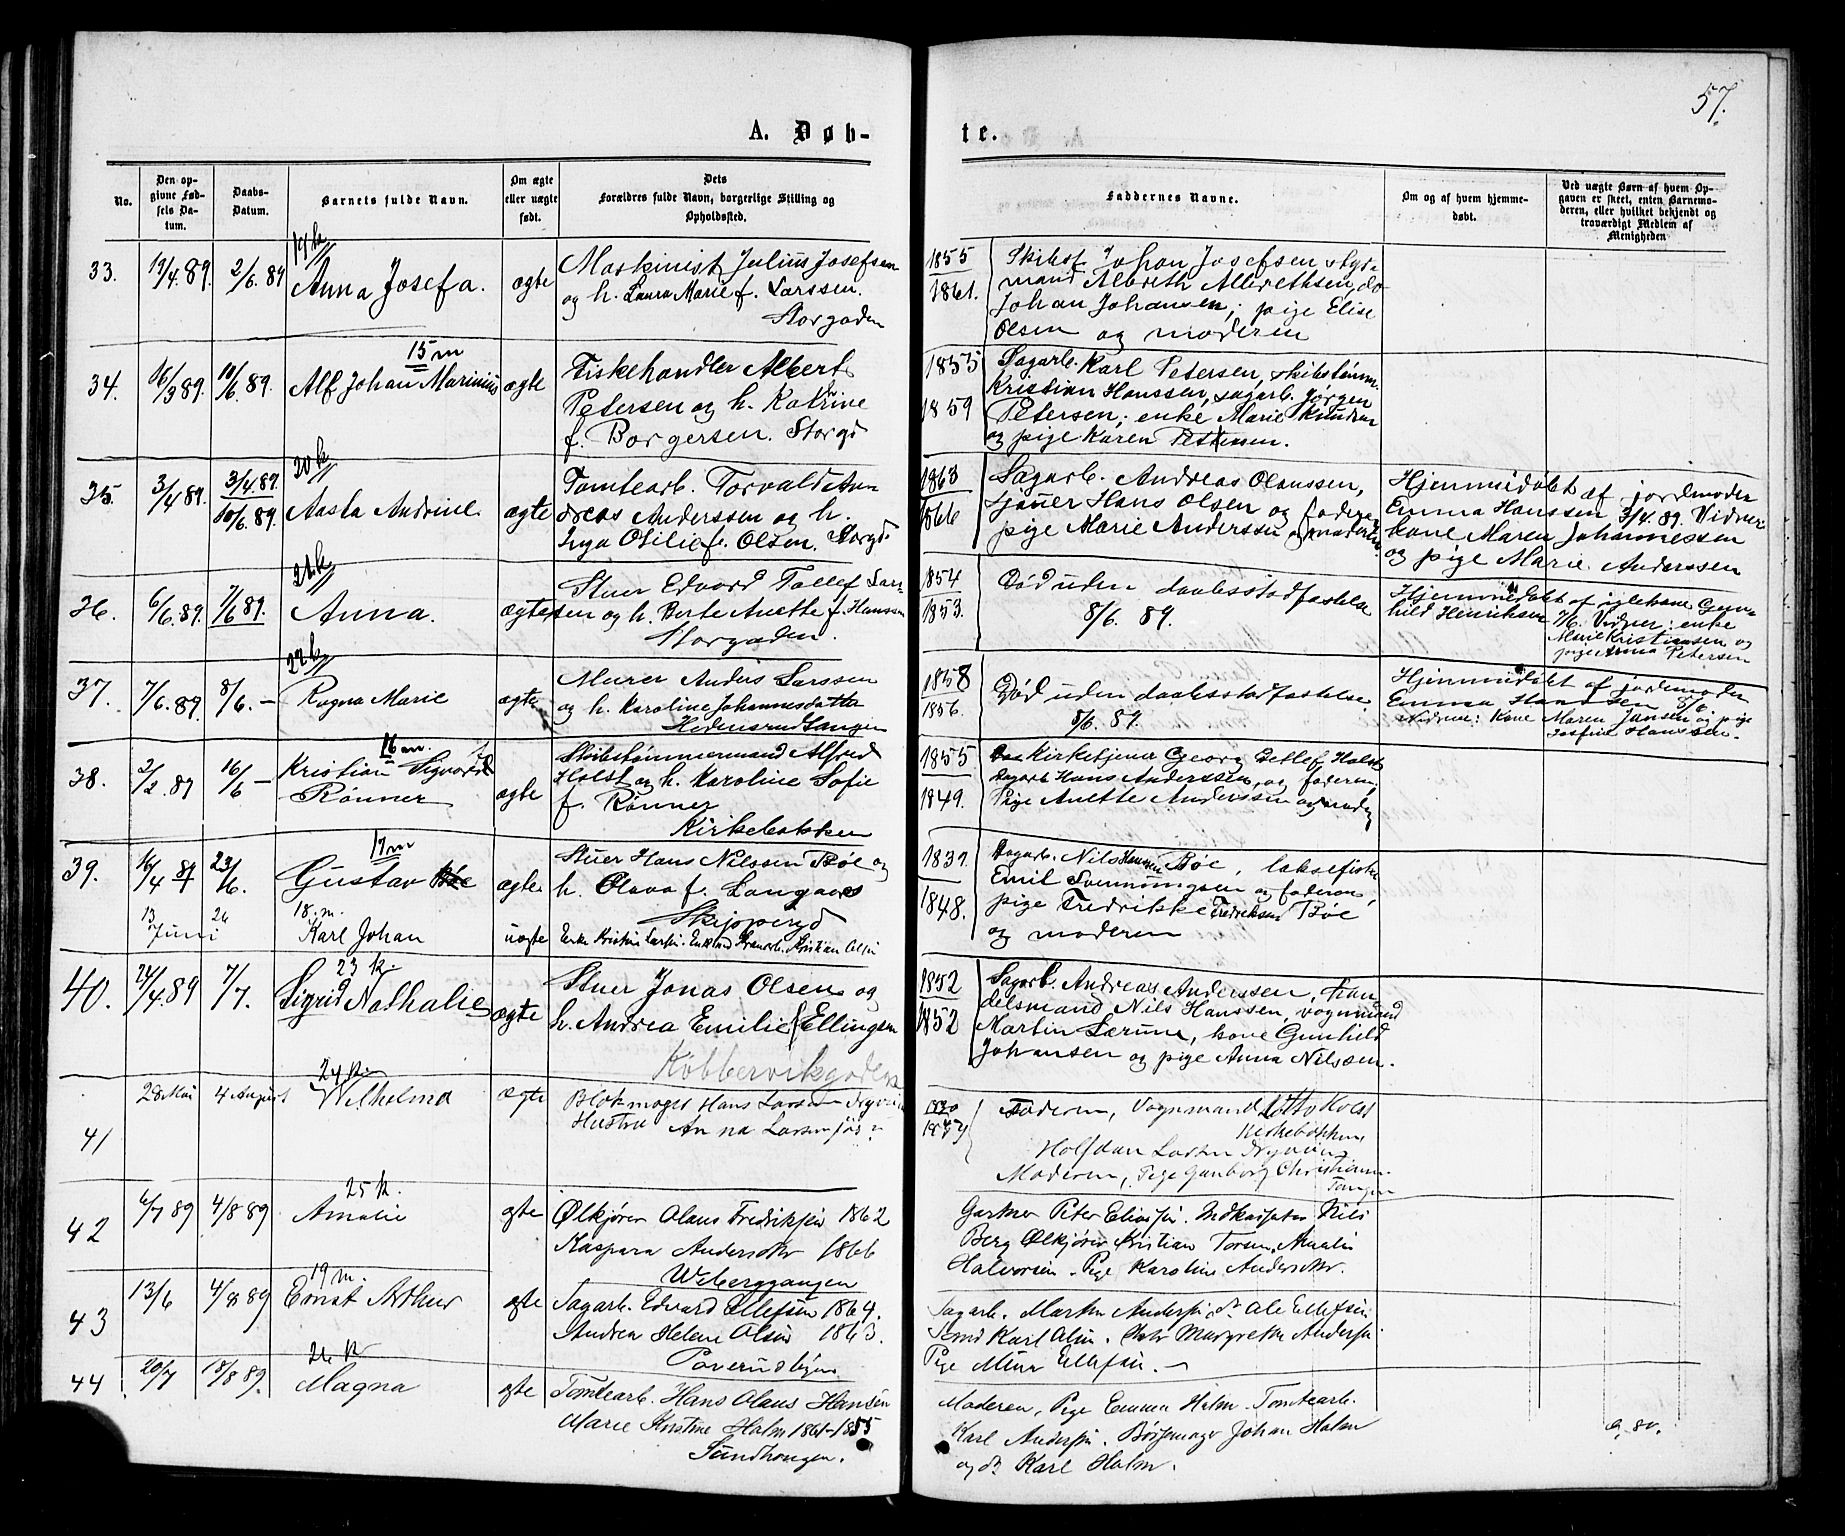 57.
A. Døb-
te.
No.
Den op-
givne Fød-
sels Da-
tum.
Daabs-
Datum.
Barnets fulde Navn.
Om ægte
eller uægte
født.
Dets
Forældres fulde Navn, borgerlige Stilling og
Opholdssted.
Faddernes Navne.
Om og af hvem hjemme-
døbt.
Ved uægte Børn af hvem Op-
gaven er skeet, enten Barnemo-
deren, eller hvilket bekjendt og
troværdigt Medlem af
Menigheden
19 k
33. 19/4.89. 2/6.89 Anna Josefa. ægte
Maskinist Julius Josefsen
og h. Laura Marie f. Larssen.
Storgaden
1855
1861.
Skibsf. Johan Josefsen, styr-
mand Albreth Albrethsen, do
Johan Johansen; pige Elise
Olsen og moderen
15 m
34. 16/3 89. 10/6.89. Alf Johan Marinius ægte
Fiskehandler Albert
Petersen og h. Katrine
f. Borgersen. Storgd
1855
1859
Sagarb. Karl Petersen, skibstømm.
Kristian Hanssen, sagarb. Jørgen
Petersen; enke Marie Knudsen
og pige Karen Pettersen.
20 k
35. 3/4 89. 3/4.89. 10/6.89. Aasta Andrine ægte
Tomtearb. Torvald An-
dreas Anderssen og h.
Inga Otilie f. Olsen. Storgd
1863
1866
Sagarb. Andreas Olaussen,
Hans Olsen og faderen,
pige Marie Anderssen og moderen
Hjemmedøbt af jordmoder
Emma Hanssen 3/4.89. Vidner
kone Maren Johannessen
og pige Marie Anderssen
21 k
36. 6/6.89. 7/6 89. Anna. ægte
Stuer Edvard Tollef Lar-
sen og h. Berte Anette f. Hanssen
Storgaden.
1854
1853.
Død uden daabsstadfæstelse
8/6. 89.
Hjemmedøbt af iglekone Gun-
hild Henriksen 7/6. Vidner: enke
Marie Kristiansen og
pige Anna Petersen
22 k
37. 7/6.89. 8/6.— Ragna Marie ægte
Murer Anders Larssen
og h. Karoline Johannesdatter
Hedensrudtangen
1858
1856.
Død uden daabsstadfæstelse
8/6. 89.
Hjemmedøbt af jordmoder
Emma Hanssen 8/6
Vidner: Kone Maren Jansen og pige
Josefine Hanssen.
16 m.
38. 2/2.89 16/6— Kristian Sigvard
Rønner ægte
Skibstømmermand Alfred
Holst og h. Karoline Sofie
f. Rønner
Kirkebakken
1855
1849.
Kirketjener Georg Detlef Holst
Sagarb. Hans Anderssen, og faderen,
Pige Anette Anderssen og mod.
17 m
39. 16/4 89 23/6. Gustav Bøe ægte
Stuer Hans Nilssen Bøe og
h. Olava f. Langaas
Skippergd
1837
1848.
Sagarb. Nils Hanssen Bøe, laksefisker
Emil Svenningsen og faderen,
pige Fredrikke Fredriksen Bøe
og moderen
13 Juni 24
18. m.
Karl Johan uægte
23 k.
40. 24/4.89 7/7. Sigrid Nathalie ægte
Stuer Jonas Olsen og
h. Andrea Emilie f. Ellingsen
Kobbervikgaden
1852
1852
Sagarb. Andreas Anderssen, han-
delsmand Nils Hanssen, vognmand
Martin Lærum, kone Gunhild
Johansen og pige Anna Nilssen.
24 k.
41 28 Mai 4 August Wilhelmd ægte
Blokmager Hans Larsen
Hustru Anna Larsen
Faderen, Vognmand Otto Holst
Kirkebakken
Halfdan Larsen
Moderen, Pige Gunborg Christians.
Tangen
25 k.
42 6/7 89 4/8 89 Amalie ægte
Ølkjører Olaus Fredriksen 1862
Kaspara Andersdtr 1866
Weberggangen
Gartner Peter Eliassen. Nils
Berg Ølkjører Kristian Torsen. Amalie
Halvorsen. Pige Karoline Andersdtr.
19 m.
43 13/6 4/8 89 Ernst Arthur ægte
Sagarb. Edvard Ellefsen 1864.
Andrea Helene Olsen 1863.
Sagarb. Martin Andersen, do Ole Ellefsen
Karl Olsen. Margrethe Andersen
Pige Mina Ellefsen.
26 k
44 20/7 18/8 89. Magna ægte
Tomtearb. Hans Olaus Hansen
Marie Kristine Holm 1861–1855
Sundhaugen.
Moderen, Pige Emma Holm. Tomtearb.
Karl Andersen. Børsemager Johan Holm
og do Karl Holm.